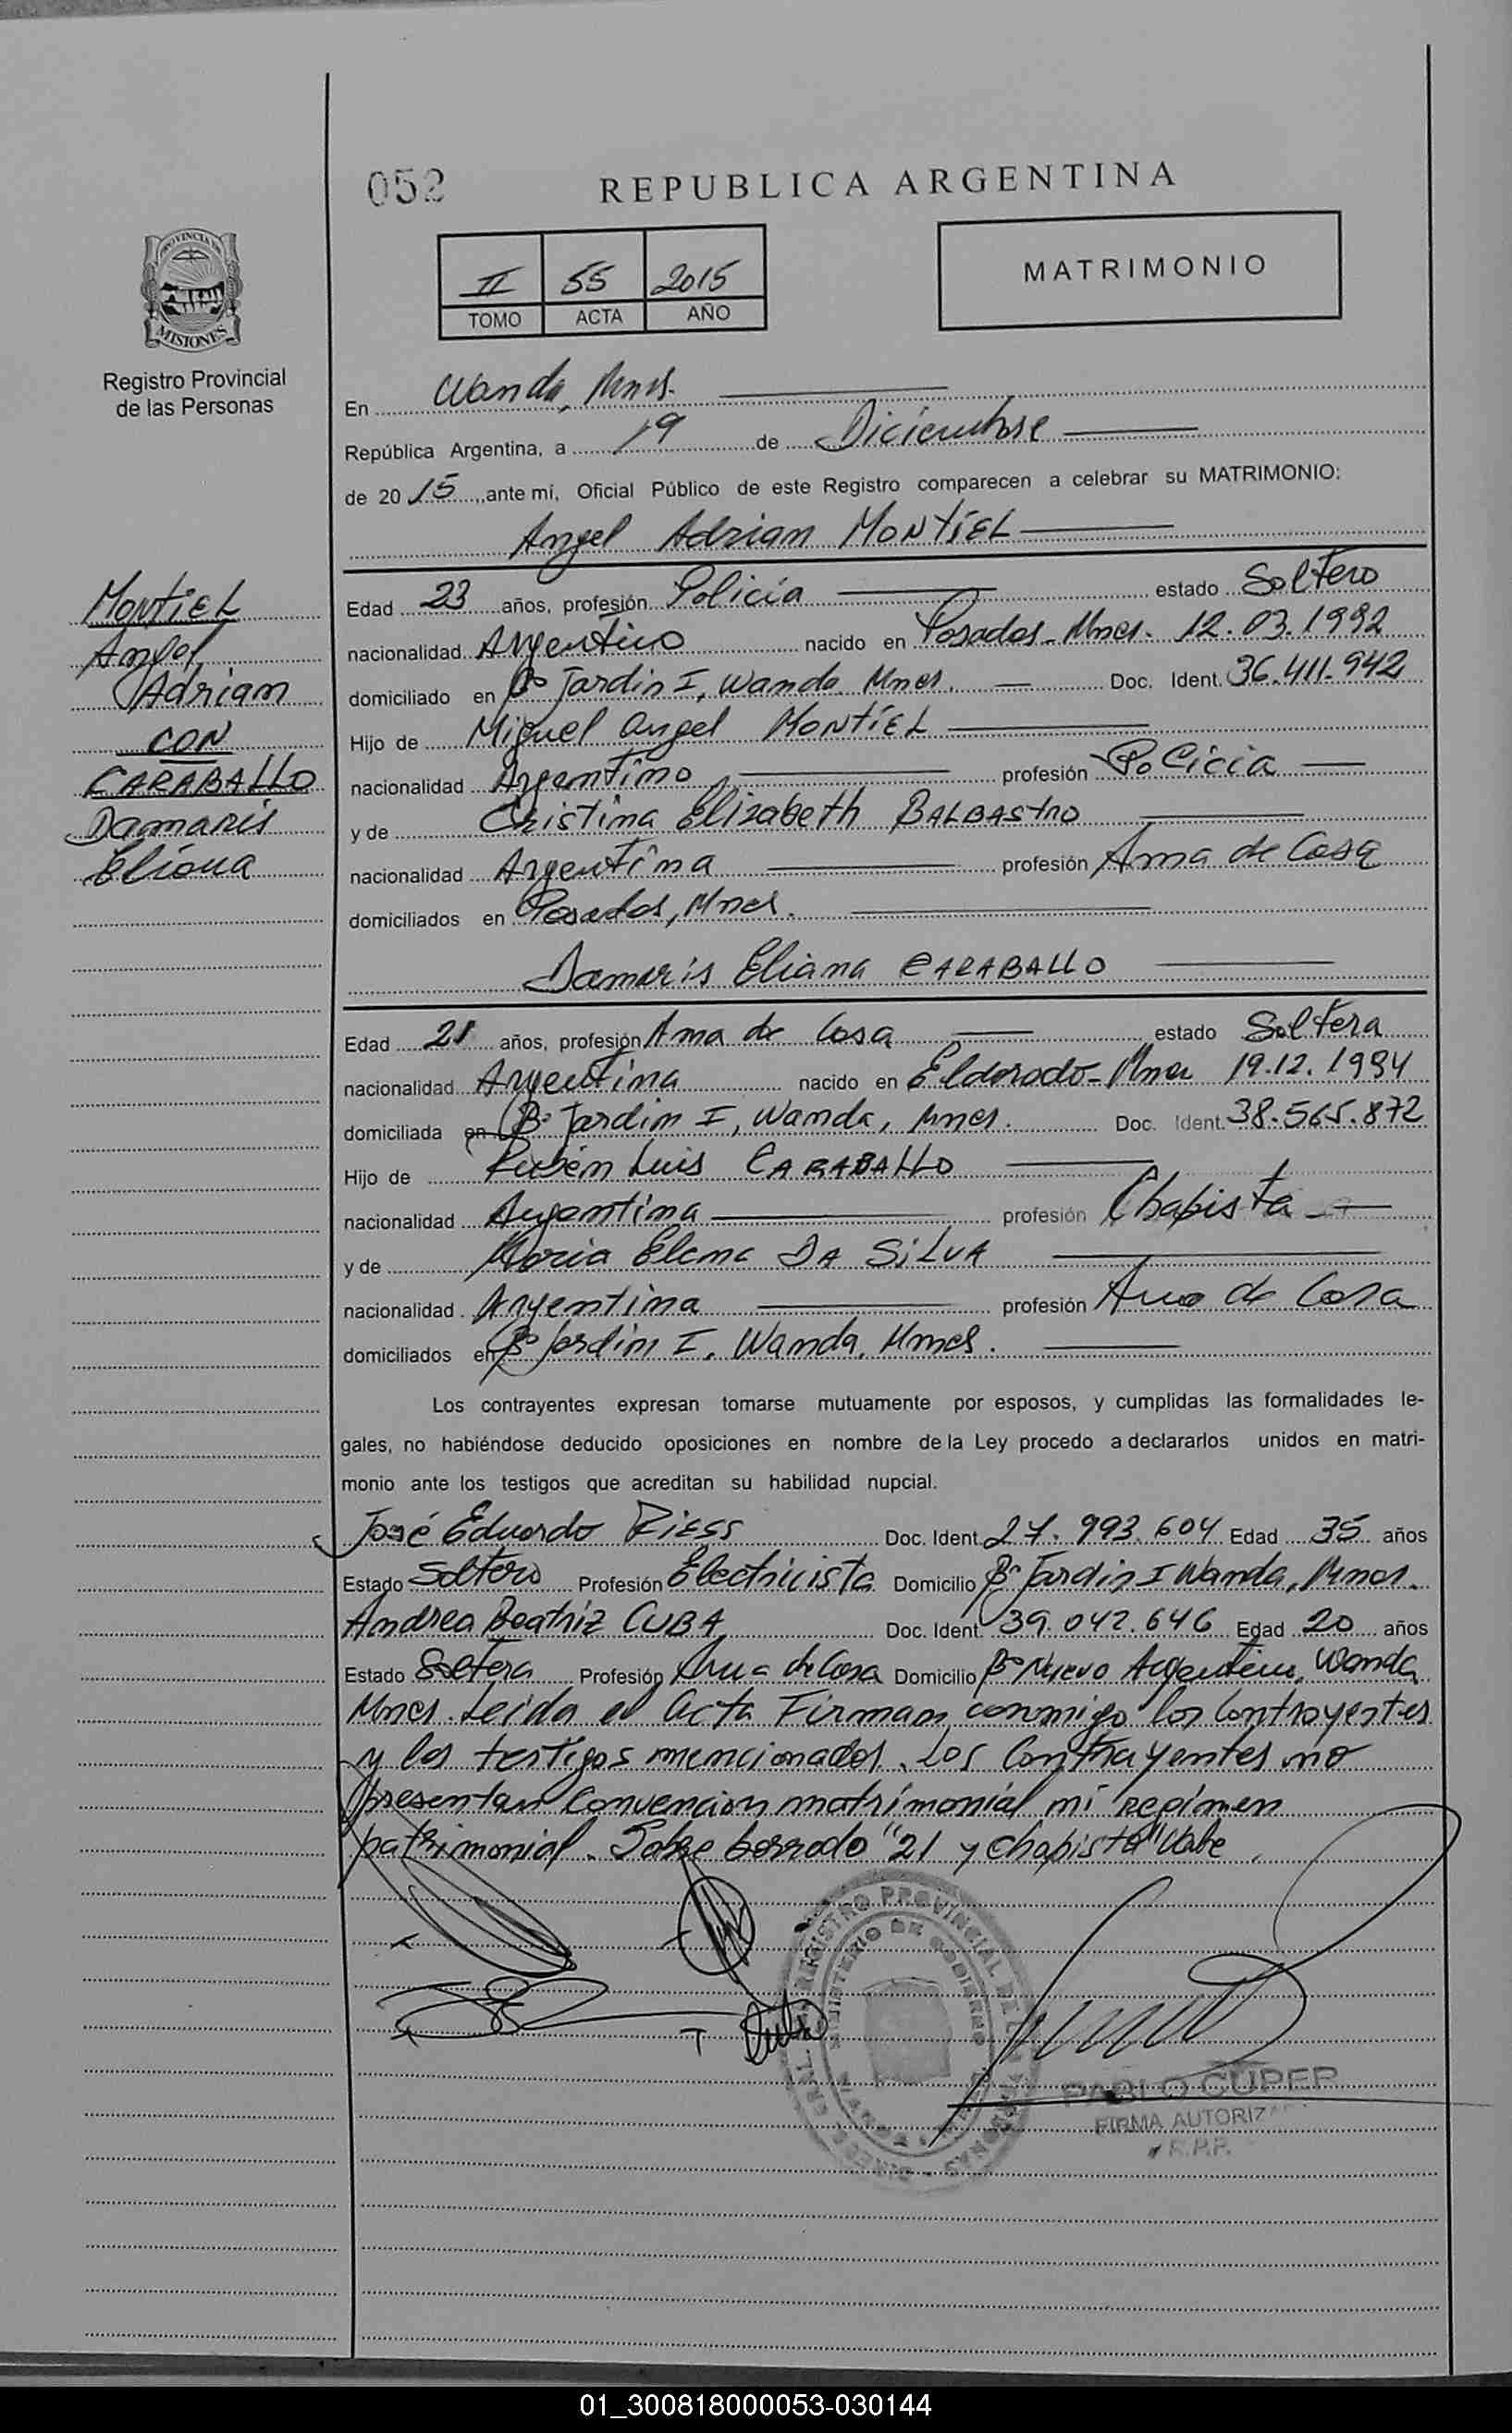 052
REPUBLICA ARGENTINA
II 55 2015
TOMO ACTA AÑO
MATRIMONIO
PROVINCIA DE
MISIONES
Registro Provincial
de las Personas
En Wanda, Mnes.
República Argentina, a 19 de Diciembre
de 2015, ante mí, Oficial Público de este Registro comparecen a celebrar su MATRIMONIO:
Angel Adrian MONTIEL
MONTIEL
Angel
Adrian
CON
CARABALLO
Damaris
Eliana
Edad 23 años, profesión Policía estado Soltero
nacionalidad Argentino nacido en Posadas - Mnes. 12.03.1992
domiciliado en Bº Jardin I, Wanda Mnes. Doc. Ident. 36.411.942
Hijo de Miguel Angel MONTIEL
nacionalidad Argentino profesión Policia
y de Cristina Elizabeth BALBASTRO
nacionalidad Argentina profesión Ama de Casa
domiciliados en Posadas, Mnes.
Damaris Eliana CARABALLO
Edad 21 años, profesión Ama de Casa estado Soltera
nacionalidad Argentina nacido en Eldorado - Mnes 19.12.1994
domiciliada en Bº Jardin I, Wanda, Mnes. Doc. Ident. 38.565.872
Hijo de Rubén Luis CARABALLO
nacionalidad Argentina profesión Chapista
y de Maria Elena DA SILVA
nacionalidad Argentina profesión Ama de Casa
domiciliados en Bº Jardin I, Wanda, Mnes.
Los contrayentes expresan tomarse mutuamente por esposos, y cumplidas las formalidades le-
gales, no habiéndose deducido oposiciones en nombre de la Ley procedo a declararlos unidos en matri-
monio ante los testigos que acreditan su habilidad nupcial.
José Eduardo RIESS Doc. Ident. 27.993.604 Edad 35 años
Estado Soltero Profesión Electricista Domicilio Bº Jardin I Wanda, Mnes.
Andrea Beatriz CUBA Doc. Ident. 39.042.646 Edad 20 años
Estado Soltera Profesión Ama de Casa Domicilio Bº Nuevo Argentino, Wanda
Mnes. Leida el Acta Firman conmigo los Contrayentes
y los testigos mencionados. Los Contrayentes no
presentan Convencion matrimonial ni regimen
patrimonial. Sobre borrado "21 y Chapista" Vale
REGISTRO PROVINCIAL DE LAS PERSONAS
MINISTERIO DE GOBIERNO
PABLO CUPER
FIRMA AUTORIZA
R.P.P.
01_300818000053-030144